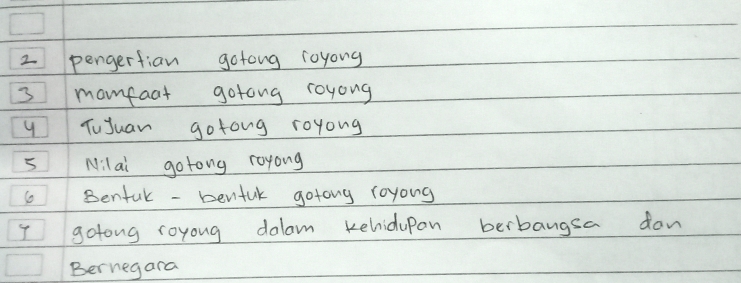 2 pengertian gotong royong
3 mamfaat gotong royong
4 Tujuan gotong royong
5 Nilai gotong royong
6 Bentuk - bentuk gotong royong
7 gotong royong dalam kehidupan berbangsa dan
Bernegara